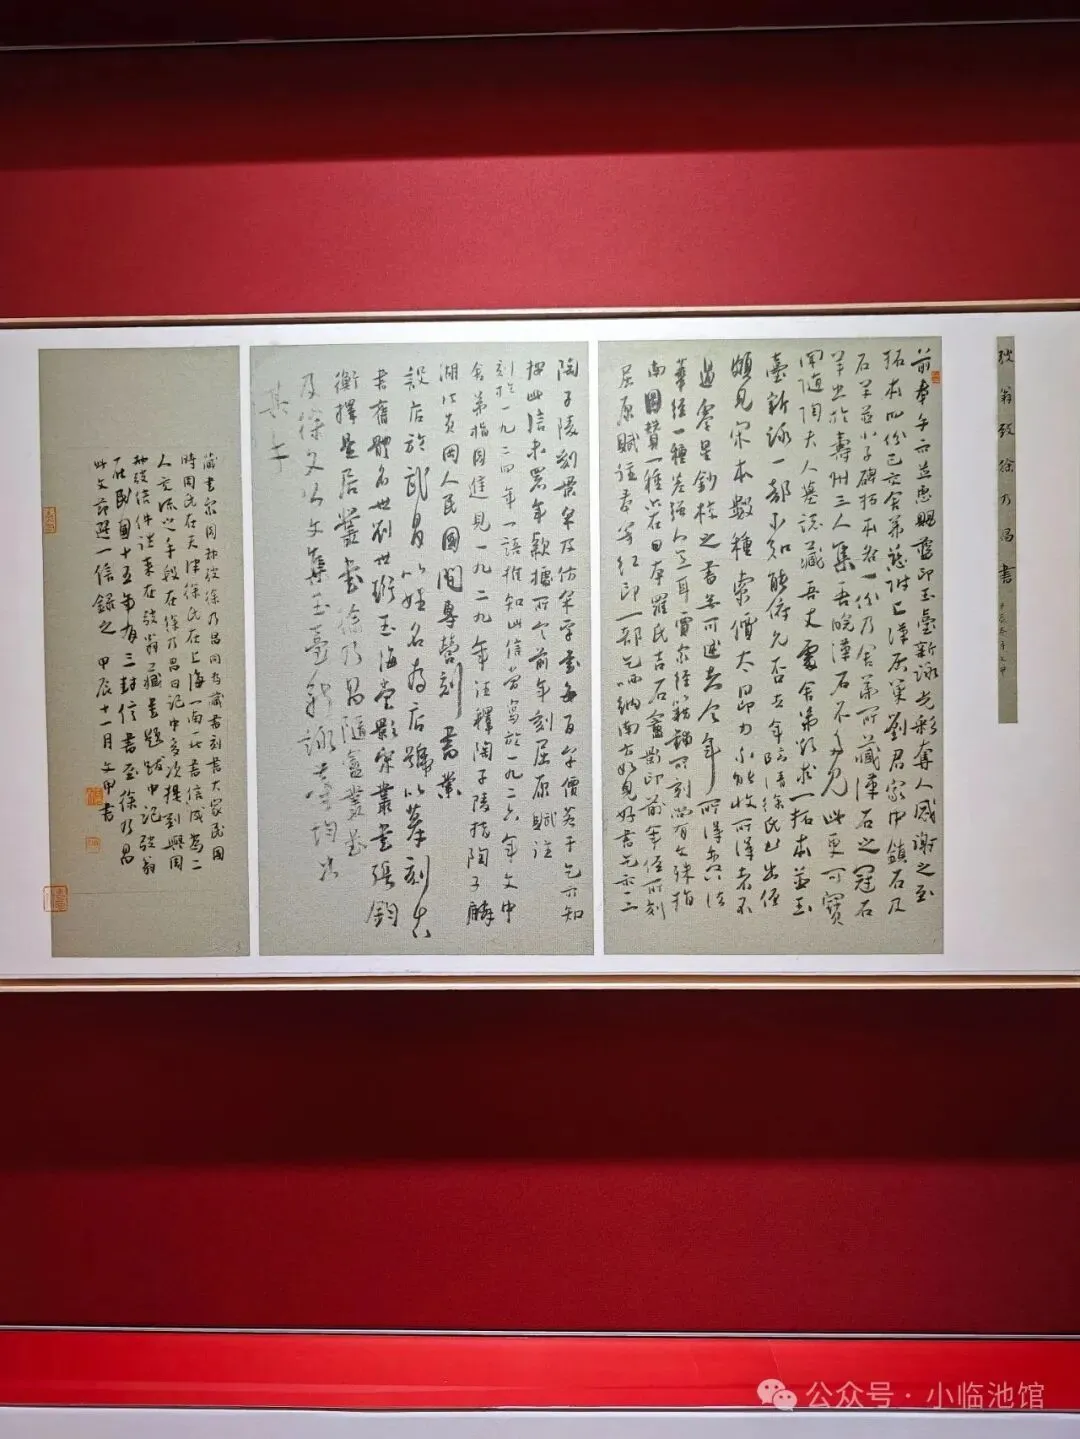 弢翁致徐乃昌書
前奉手示并惠賜舊印玉臺新詠光彩奪人感謝之至
拓本四份已交舍弟
石羊並小子碑拓本各一份乃舍弟所藏漢石之冠石
羊出於壽州三人集吾皖漢石不多見此更可寶
聞随陶大人墓誌藏吾丈處舍弟欲求一拓本並玉
臺新詠一部不知能俯允否去年臨清徐氏書出促
頗見宋本數種索價太昂力不能收所得者不
過零星鈔校之書無可述者今年所得亦
華經一種差強人意耳
南圖贊一種簽在日本羅氏吉石盦影印前年侄所刻
屈原賦注奉寄紅印一部乞哂納南方如見好書乞示一二
陶子陵刻景宋及仿宋字書每百字價若干乞示知
按此信未署年款據所言前年刻屈原賦注
刻於一九二四年一語推知此信當寫於一九二六年文中
舍弟指周進見一九二九年注釋陶子陵指陶子麟
湖北黄岡人民國間專營刻書業
設店於武昌以姓名為店號以摹刻古
書舊體名世劉世珩玉海堂影宋叢書張鈞
衡擇是居叢書徐乃昌隨盦叢書
及徐文公文集玉臺新詠等均出
其手
藏書家周叔弢徐乃昌同為藏書刻書大家民國
時周氏在天津徐氏在上海一南一北書信成為二
人交流之手段在徐乃昌日記中多次提到與周
叔弢信件往来在弢翁藏書題跋中記弢翁
於民國十五年有三封信書至徐乃昌
此文節選一信録之甲辰十一月文甲書
公众号·小临池馆